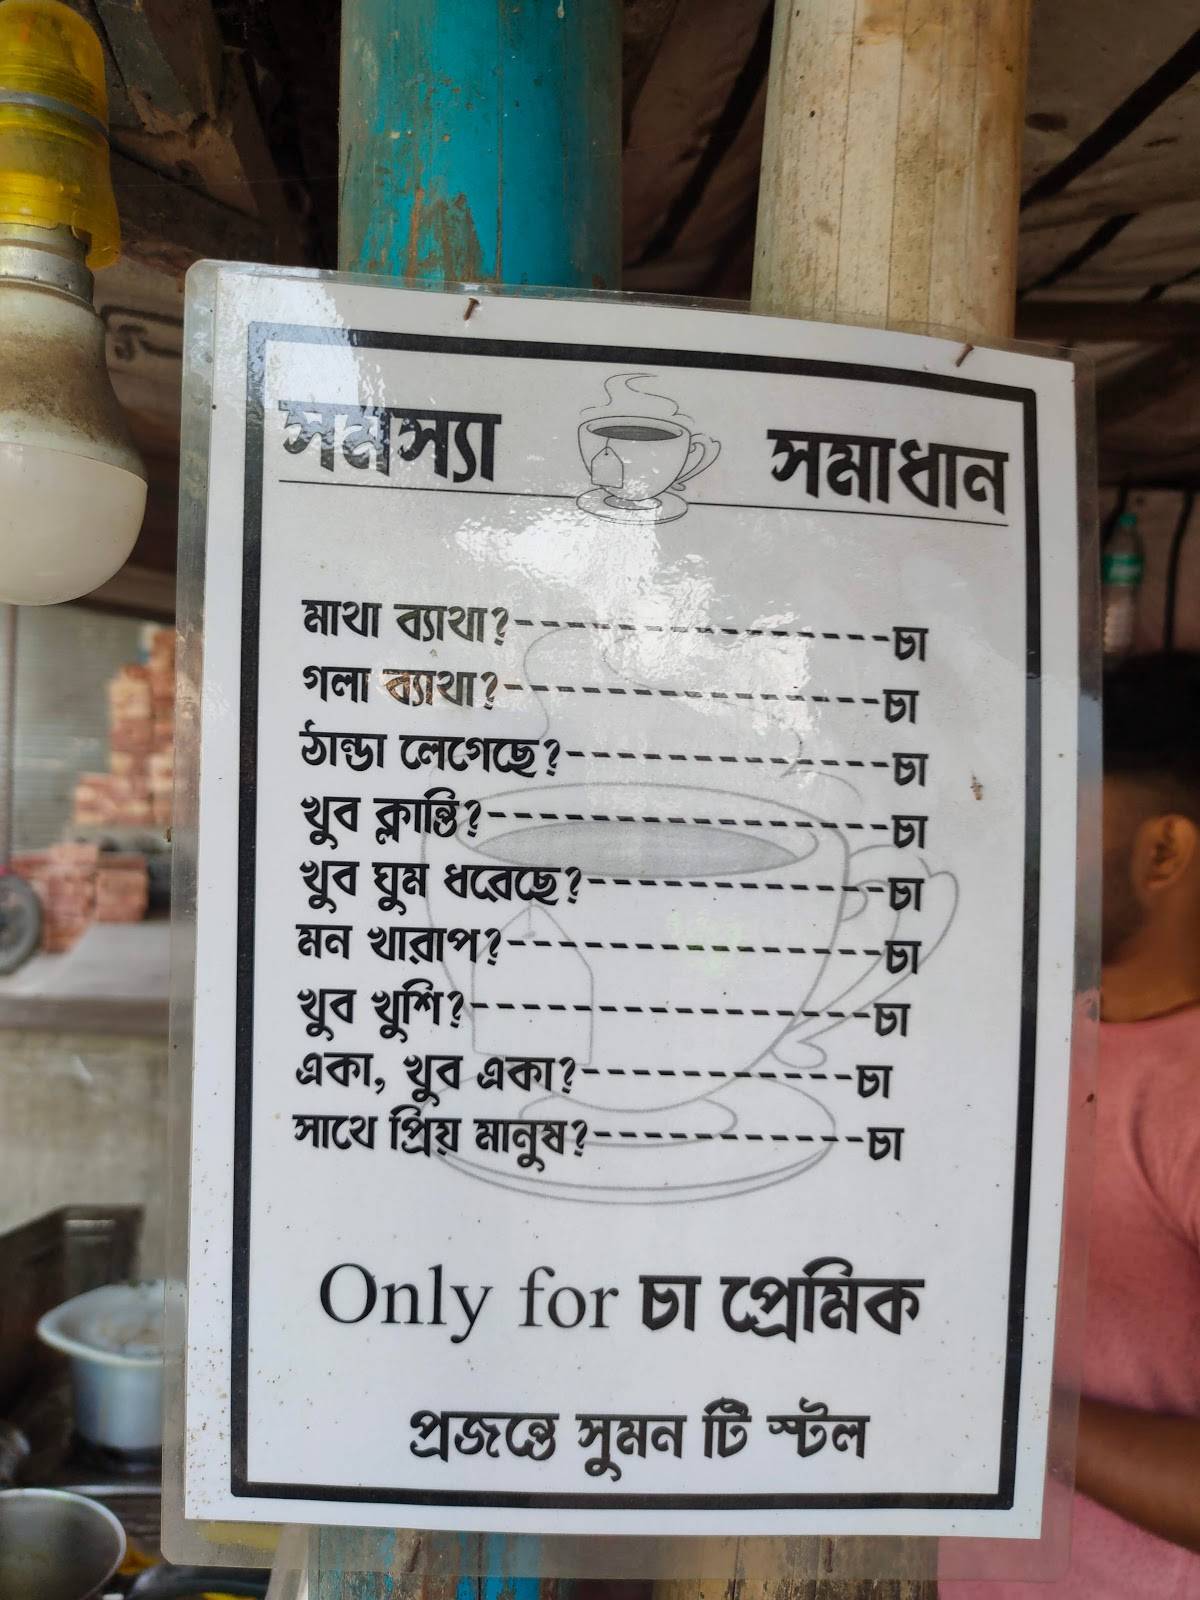 সমস্যা সমাধান
মাথা ব্যাথা?----------------চা
গলা ব্যাথা?----------------চা
ঠান্ডা লেগেছে?--------------চা
খুব ক্লান্তি?-----------------চা
খুব ঘুম ধরেছে?-------------চা
মন খারাপ?----------------চা
খুব খুশি?-----------------চা
একা, খুব একা?-----------চা
সাথে প্রিয় মানুষ?-----------চা
Only for চা প্রেমিক
প্রজন্তে সুমন টি স্টল